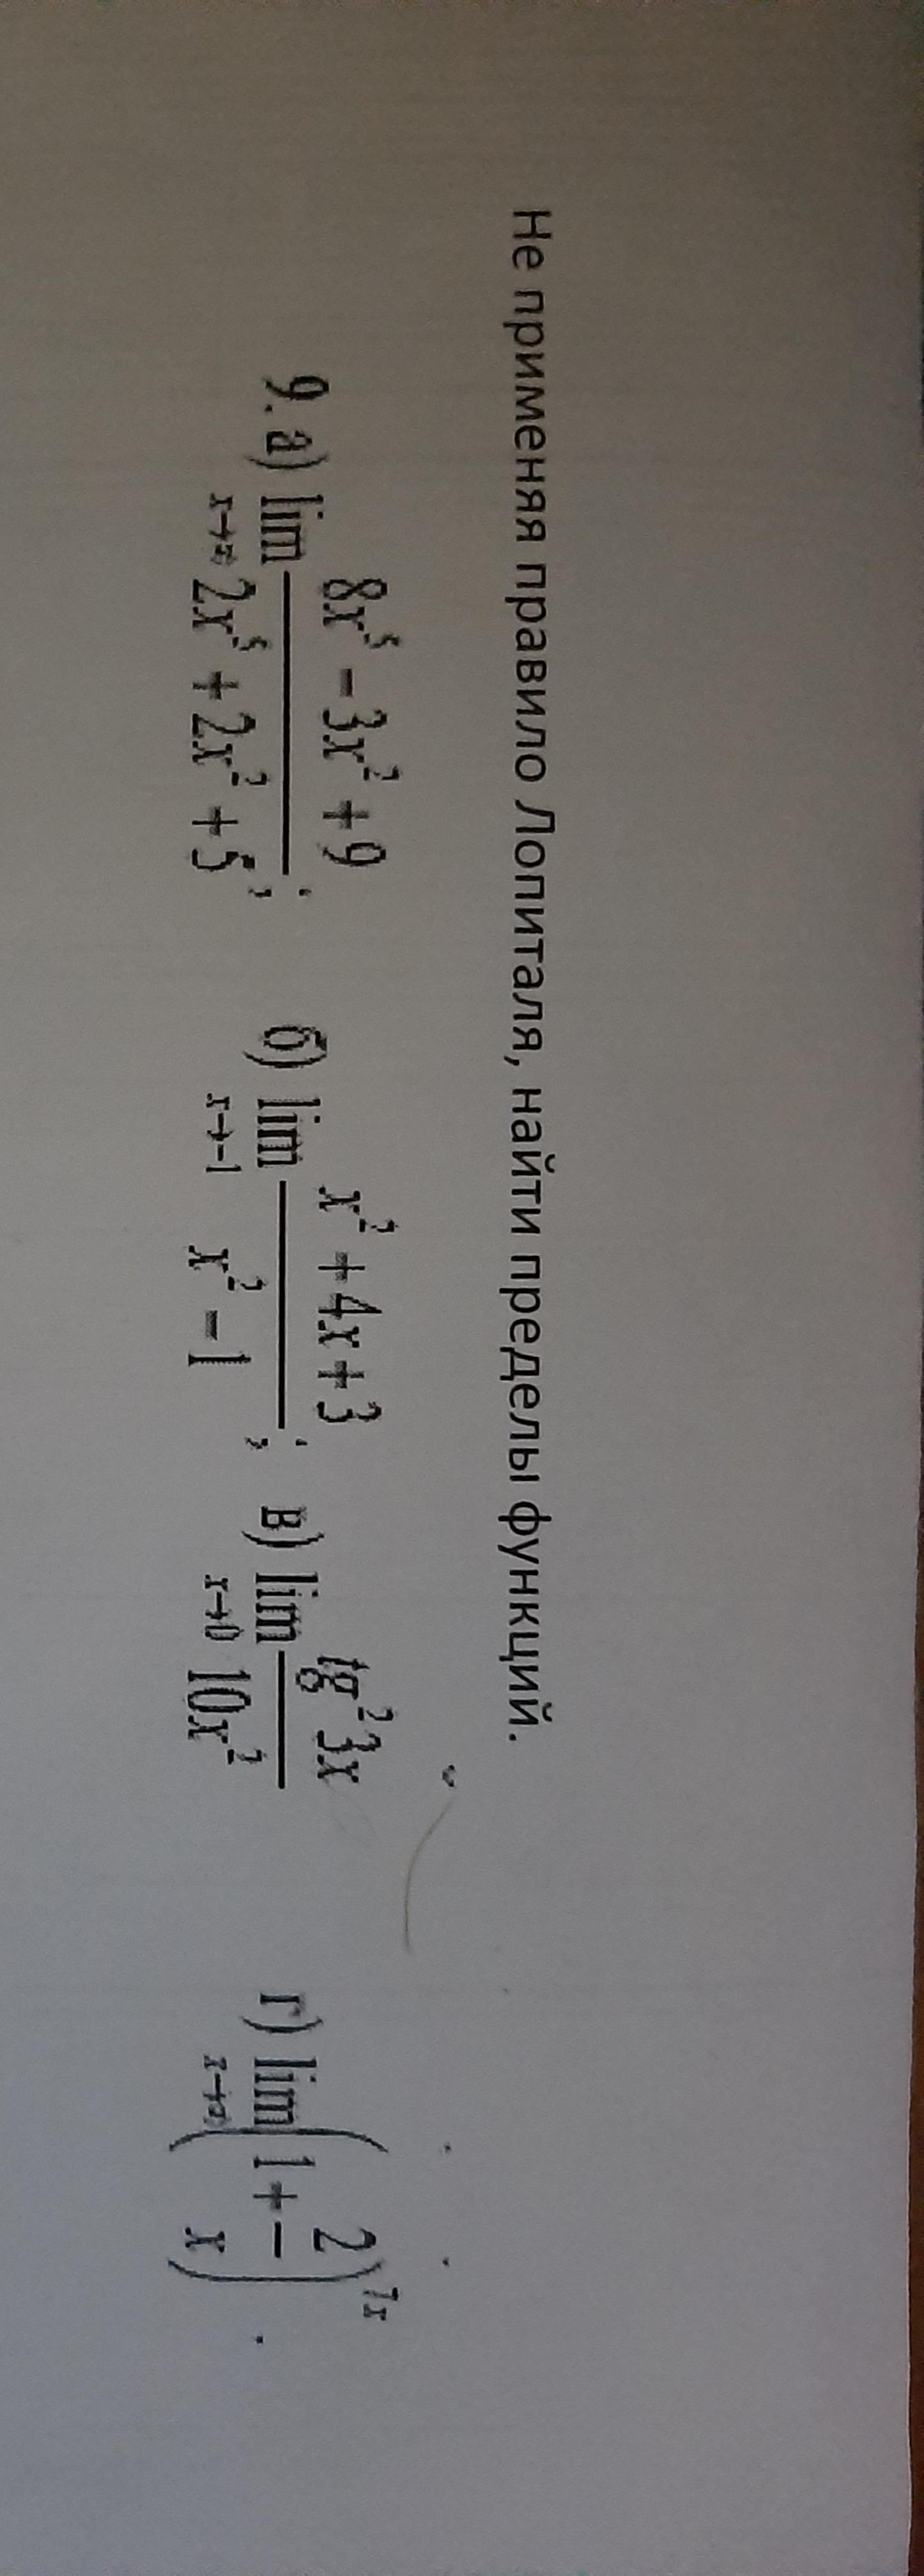 Не применяя правило Лопиталя, найти пределы функций.
9. а) lim x→∞ (8x⁵ − 3x² + 9)/(2x⁵ + 2x² + 5); б) lim x→−1 (x² + 4x + 3)/(x² − 1); в) lim x→0 tg²3x/10x² г) lim x→∞ (1 + 2/x)⁷ˣ.